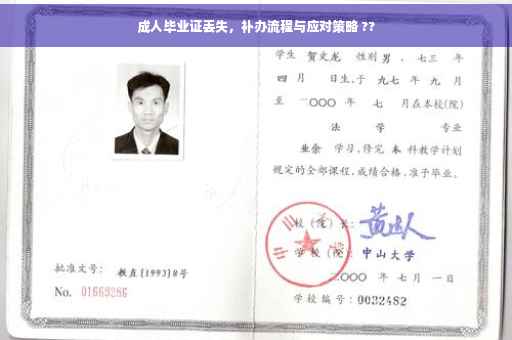 成人毕业证丢失，补办流程与应对策略 ??
学生 贺文龙 性别 男 、七三 年
四 月 日生,于 九七 年 九 月
至 二〇〇〇 年 七 月在本校(院)
法 学 专业
业余 学习,修完 本 科教学计划
规定的全部课程,成绩合格,准予毕业。
校(院)长:
学校(院): 中山大学
二〇〇〇 年 七 月 一 日
批准文号: 教直[1993]8号
No. 01669286
学校编号: 0032482